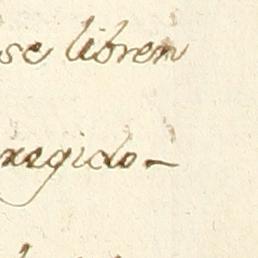 se libren
regido-